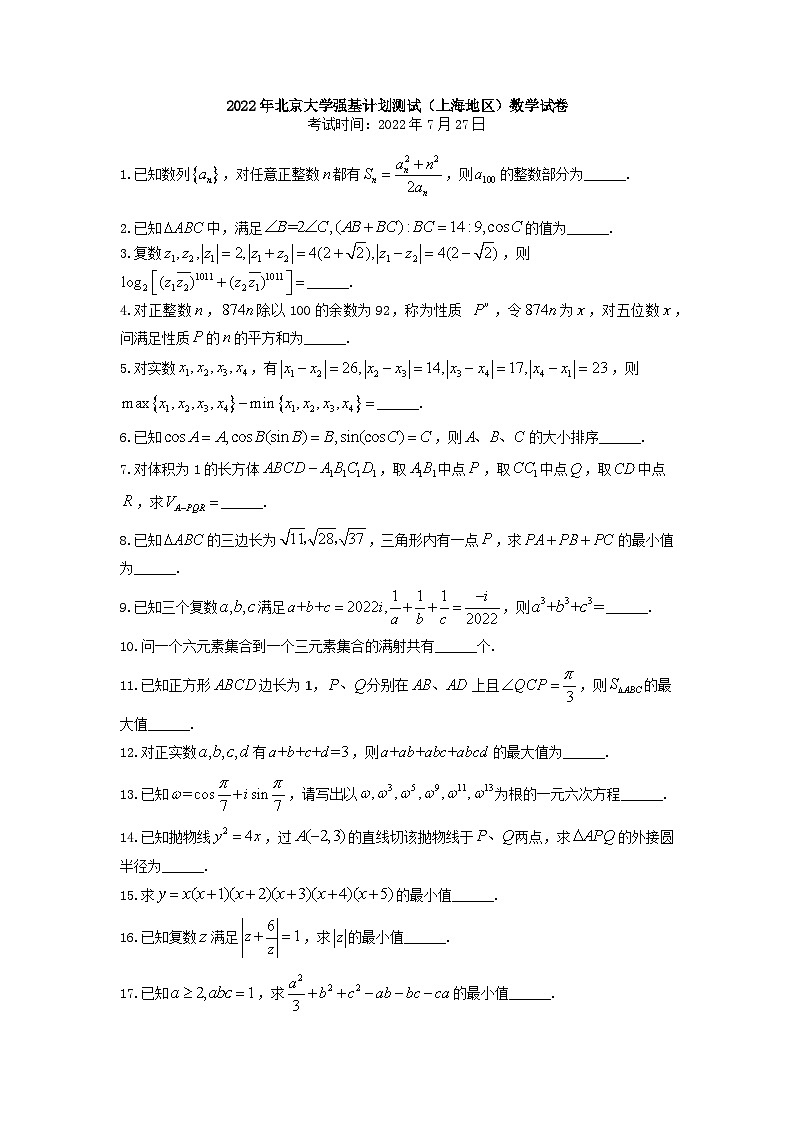 2022年北京大学强基计划测试（上海地区）数学试卷
考试时间：2022年7月27日
1.已知数列{aₙ}，对任意正整数n都有Sₙ = (aₙ² + n²)/(2aₙ)，则a₁₀₀的整数部分为______.
2.已知ΔABC中，满足∠B=2∠C,(AB + BC) : BC = 14 : 9,cosC的值为______.
3.复数z₁,z₂,|z₁| = 2,|z₁ + z₂| = 4(2 + √2),|z₁ − z₂| = 4(2 − √2)，则
log₂[(z₁z̅₂)¹⁰¹¹ + (z₂z̅₁)¹⁰¹¹] = ______.
4.对正整数n，874n除以100的余数为92，称为性质 P"，令874n为x，对五位数x，
问满足性质P的n的平方和为______.
5.对实数x₁,x₂,x₃,x₄，有|x₁ − x₂| = 26,|x₂ − x₃| = 14,|x₃ − x₄| = 17,|x₄ − x₁| = 23，则
max{x₁,x₂,x₃,x₄} − min{x₁,x₂,x₃,x₄} = ______.
6.已知cosA = A,cosB(sinB) = B,sin(cosC) = C，则A、B、C的大小排序______.
7.对体积为1的长方体ABCD − A₁B₁C₁D₁，取A₁B₁中点P，取CC₁中点Q，取CD中点
R，求V_{A−PQR} = ______.
8.已知ΔABC的三边长为√11，√28，√37，三角形内有一点P，求PA + PB + PC的最小值
为______.
9.已知三个复数a,b,c满足a+b+c = 2022i, 1/a + 1/b + 1/c = −i/2022，则a³+b³+c³=______.
10.问一个六元素集合到一个三元素集合的满射共有______个.
11.已知正方形ABCD边长为1，P、Q分别在AB、AD上且∠QCP = π/3，则S_{ΔABC}的最
大值______.
12.对正实数a,b,c,d有a+b+c+d=3，则a+ab+abc+abcd的最大值为______.
13.已知ω=cos π/7 + i sin π/7，请写出以ω,ω³,ω⁵,ω⁹,ω¹¹,ω¹³为根的一元六次方程______.
14.已知抛物线y² = 4x，过A(−2,3)的直线切该抛物线于P、Q两点，求ΔAPQ的外接圆
半径为______.
15.求y = x(x+1)(x+2)(x+3)(x+4)(x+5)的最小值______.
16.已知复数z满足|z + 6/z| = 1，求|z|的最小值______.
17.已知a ≥ 2,abc = 1，求a²/3 + b² + c² − ab − bc − ca的最小值______.